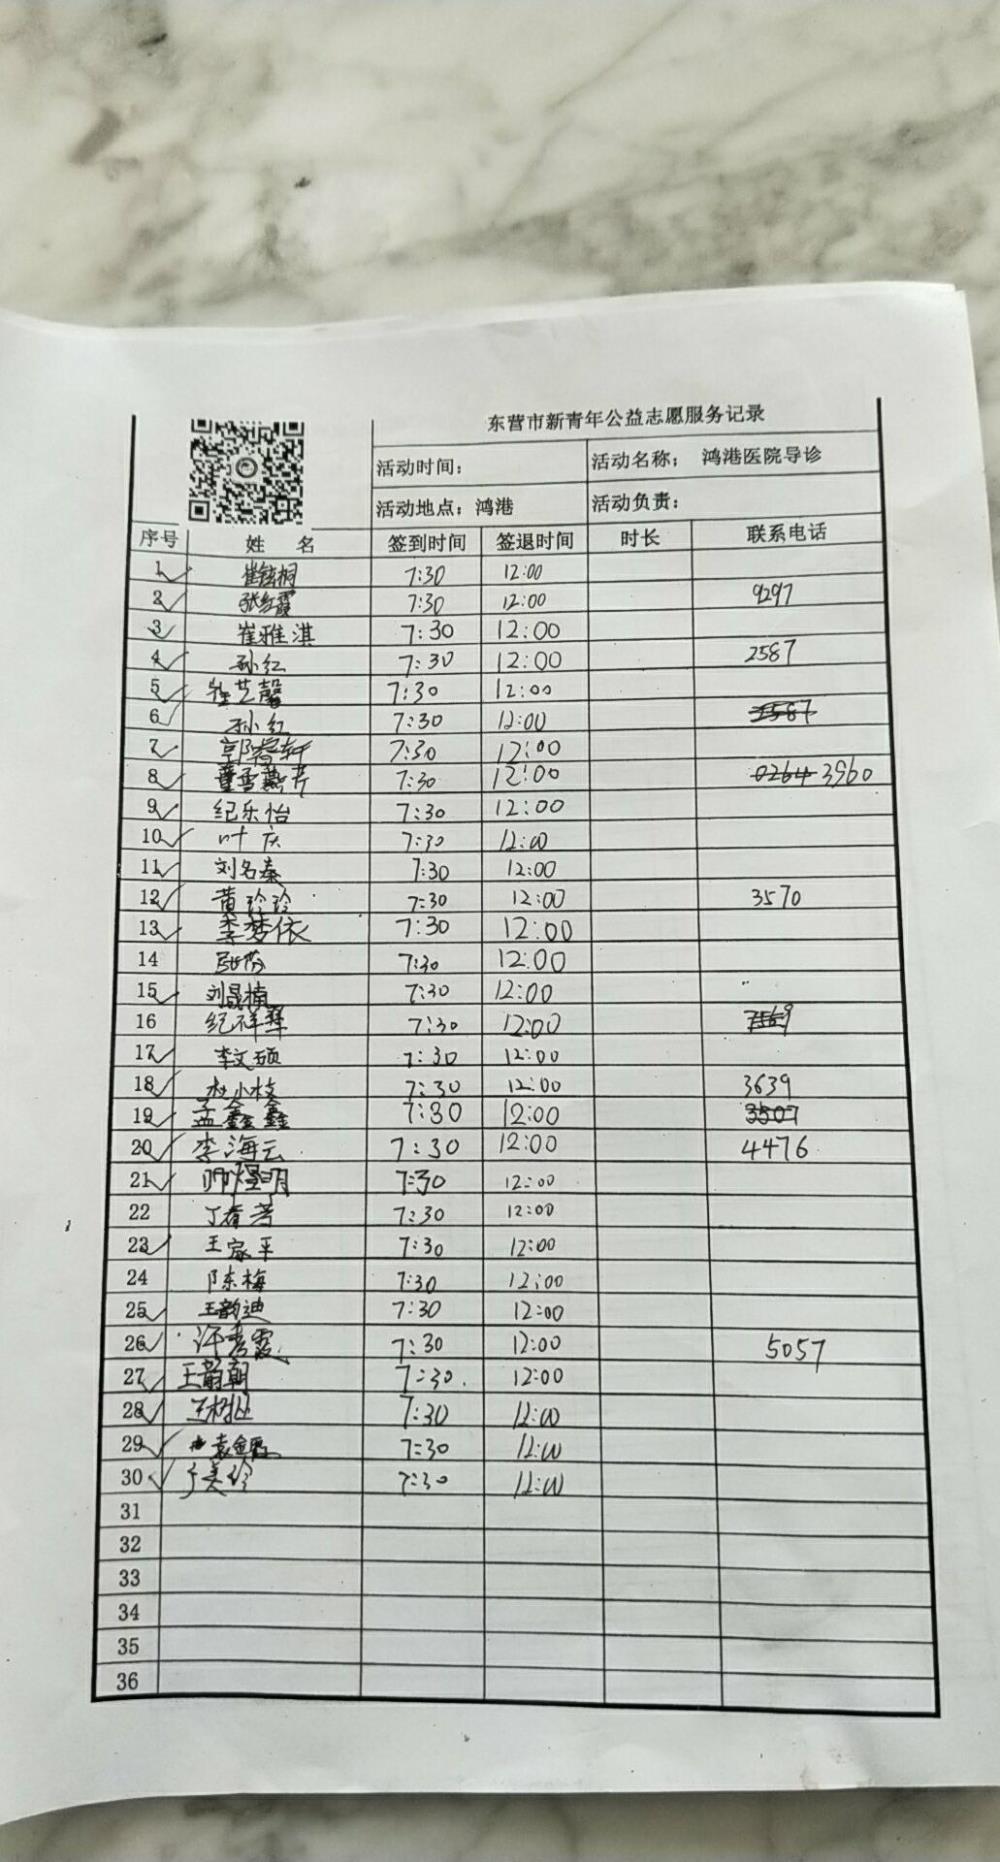 东营市新青年公益志愿服务记录
活动时间： 活动名称： 鸿港医院导诊
活动地点：鸿港 活动负责：
序号 姓 名 签到时间 签退时间 时长 联系电话
1 7:30 12:00
2 张红霞 7:30 12:00 9297
3 崔雅淇 7:30 12:00
4 孙红 7:30 12:00 2587
5 7:30 12:00
6 孙红 7:30 12:00 2587
7 7:30 12:00
8 7:30 12:00 0264 3960
9 纪乐怡 7:30 12:00
10 叶庆 7:30 12:00
11 刘名秦 7:30 12:00
12 黄玲玲 7:30 12:00 3570
13 李梦依 7:30 12:00
14 7:30 12:00
15 刘晟楠 7:30 12:00
16 7:30 12:00
17 李文硕 7:30 12:00
18 杜小枝 7:30 12:00 3639
19 孟鑫鑫 7:30 12:00 3507
20 李海云 7:30 12:00 4476
21 7:30 12:00
22 7:30 12:00
23 王家平 7:30 12:00
24 陈东梅 7:30 12:00
25 王韵迪 7:30 12:00
26 7:30 12:00 5057
27 王韵朝 7:30 12:00
28 7:30 12:00
29 7:30 12:00
30 于美玲 7:30 12:00
31
32
33
34
35
36